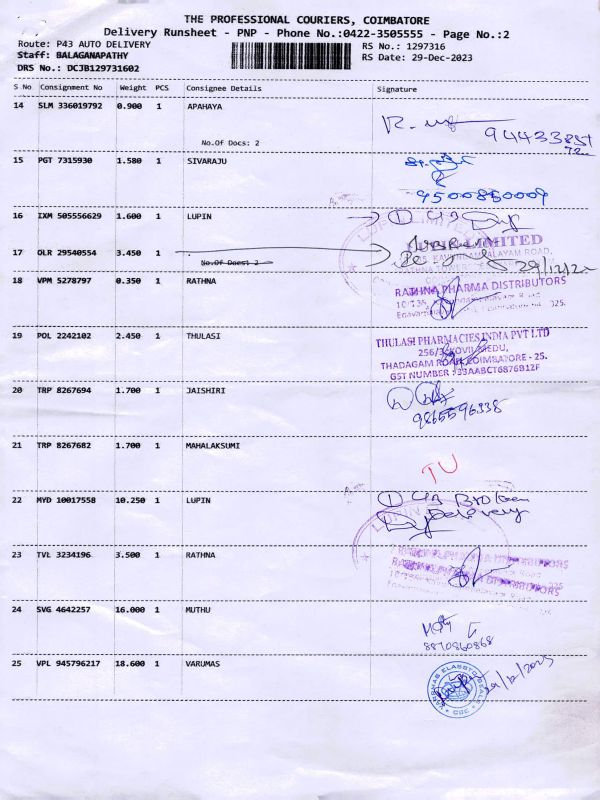 THE PROFESSIONAL COURIERS, COIMBATORE
Delivery Runsheet - PNP - Phone No.:0422-3505555 - Page No.:2
Route: P43 AUTO DELIVERY
RS No.: 1297316
Staff: BALAGANAPATHY
RS Date: 29-Dec-2023
DRS No.: DCJB129731602
S No Consignment No Weight PCS Consignee Details Signature
14 SLM 336019792 0.900 1 APAHAYA
No.Of Docs: 2
15 PGT 7315930 1.580 1 SIVARAJU
9500850009
16 IXM 505556629 1.600 1 LUPIN
LIMITED
17 OLR 29540554 3.450 1
No.Of Docs: 2
18 VPM 5278797 0.350 1 RATHNA
RATHNA PHARMA DISTRIBUTORS
19 POL 2242102 2.450 1 THULASI
THULASI PHARMACIES INDIA PVT LTD
THADAGAM ROAD, COIMBATORE - 25.
GST NUMBER : 33AABCT6876B1ZF
20 TRP 8267694 1.700 1 JAISHIRI
9865596338
21 TRP 8267682 1.700 1 MAHALAKSUMI
TU
22 MYD 10017558 10.250 1 LUPIN
Broken
Delevery
23 TVL 3234196 3.500 1 RATHNA
24 SVG 4642257 16.000 1 MUTHU
8870860868
25 VPL 945796217 18.600 1 VARUMAS